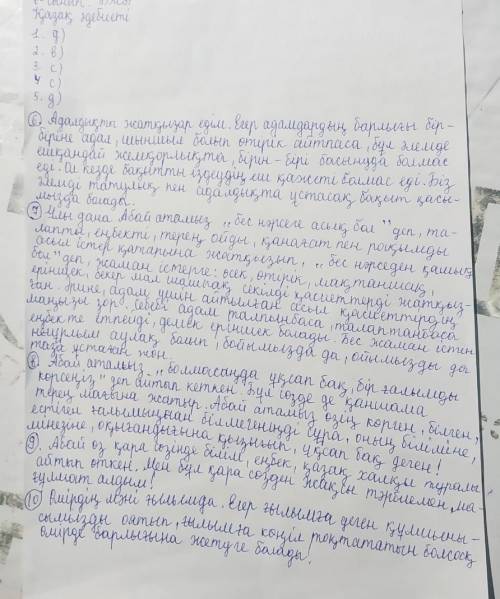 Қазақ әдебиеті
1. д)
2. в)
3. с)
4 с)
5. д)
6. Адалдықты жатқызар едім. Егер адамдардың барлығы бір-
біріне адал, шыншыл болып өтірік айтпаса, бұл әлемде
ешқандай жемқорлықта, бірін-бірі басынуда болмас
еді. Ол кезде бақытты іздеудің еш қажеті болмас еді. Біз
әлемді татулық пен адалдықта ұстасақ, бақыт қасы-
мызда болады.
7. Ұлы дана Абай атамыз „бес нәрсеге асық бол" деп, та-
лапты, еңбекті, терең ойды, қанағат пен рақымды
асыл істер қатарына жатқызып, „бес нәрседен қашық
бол" деп, жаман істерге: өсек, өтірік, мақтаншақ,
еріншек, бекер мал шашпақ секілді қасиеттерді жатқыз-
ған. Әрине, адам үшін айтылған асыл қасиеттердің
маңызы зор. Себебі адам талпынбаса, талаптанбаса
еңбек те етпейді, демек еріншек болады. Бес жаман істен
неғұрлым аулақ болып, бойымызда да, ойымызды да
таза ұстаған жөн.
8. Абай атамыз - „Болмасаңда ұқсап бақ, бір ғалымды
көрсеңіз" деп айтып кеткен. Бұл сөзде де қаншама
терең мағына жатыр. Абай атамыз өзің көрген, білген,
естіген ғалымыңнан білмегеніңді сұра, оның біліміне,
мінезіне, оқығандығына қызығып, ұқсап бақ деген!
9. Абай өз қара сөзінде білім, еңбек, қазақ халқы туралы,
айтып өткен. Мен бұл қара сөзден жақсы тәрбиемен, ма-
ғлұмат алдым!
10. Өмірдің мәні ғылымда. Егер ғылымға деген құлшыны-
сымызды оятып, ғылымға көңіл тоқтататын болсақ
өмірде барлығына жетуге болады!